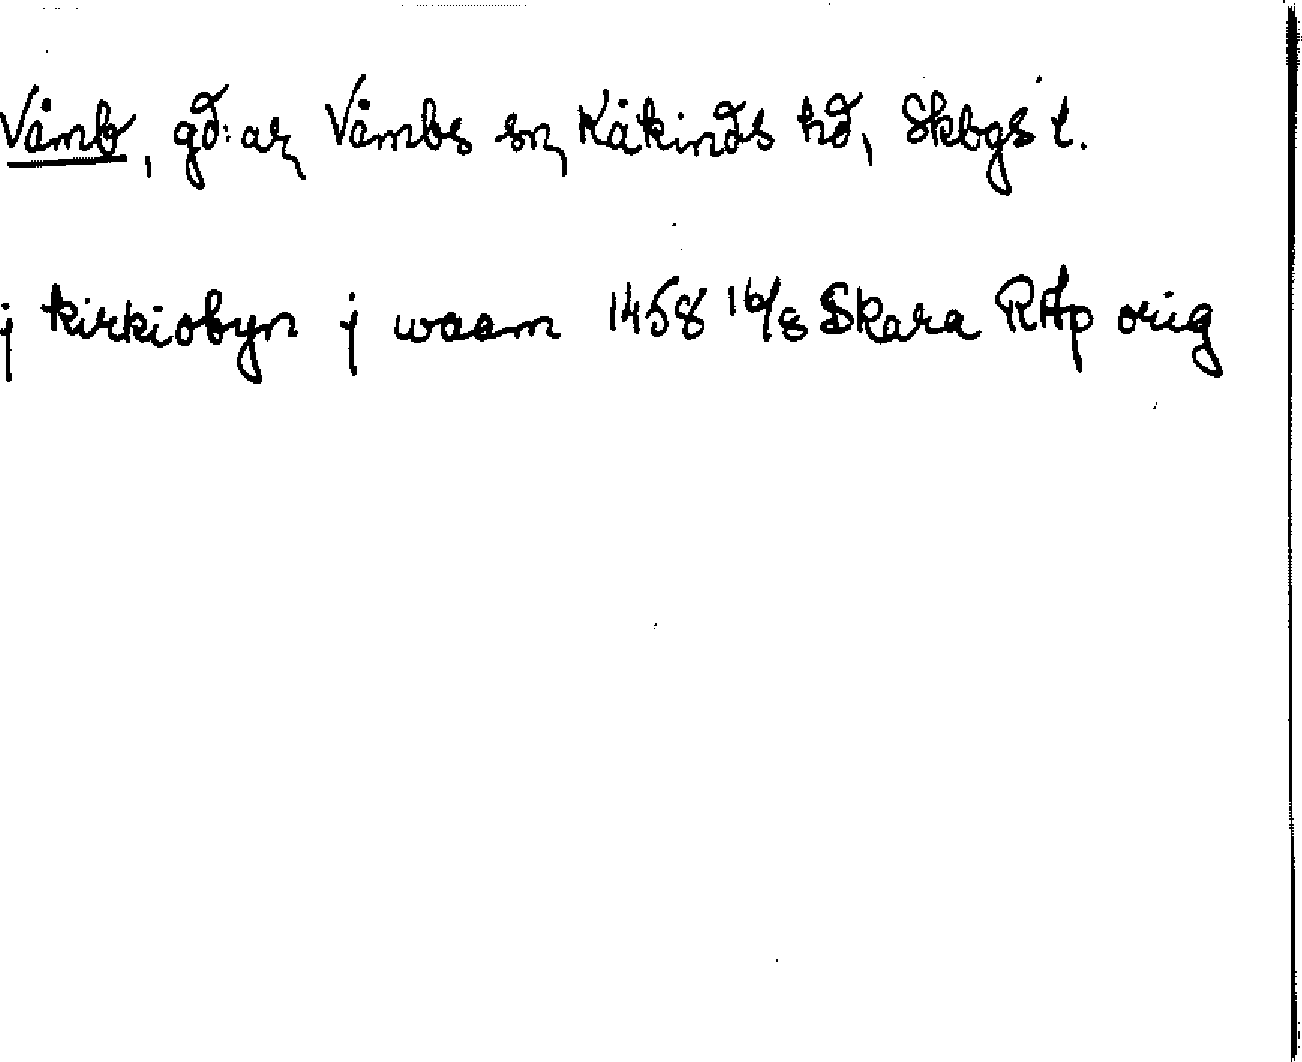 Våmb, gd:ar, Våmbs sn, Kåkinds hd, Skbgs l.
j kirkiobyn j waam 1458 16/8 Skara RAp orig